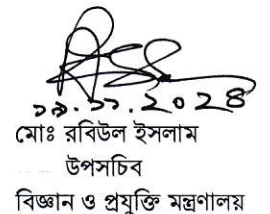 ১৯.১১.২০২৪
মোঃ রবিউল ইসলাম
উপসচিব
বিজ্ঞান ও প্রযুক্তি মন্ত্রণালয়